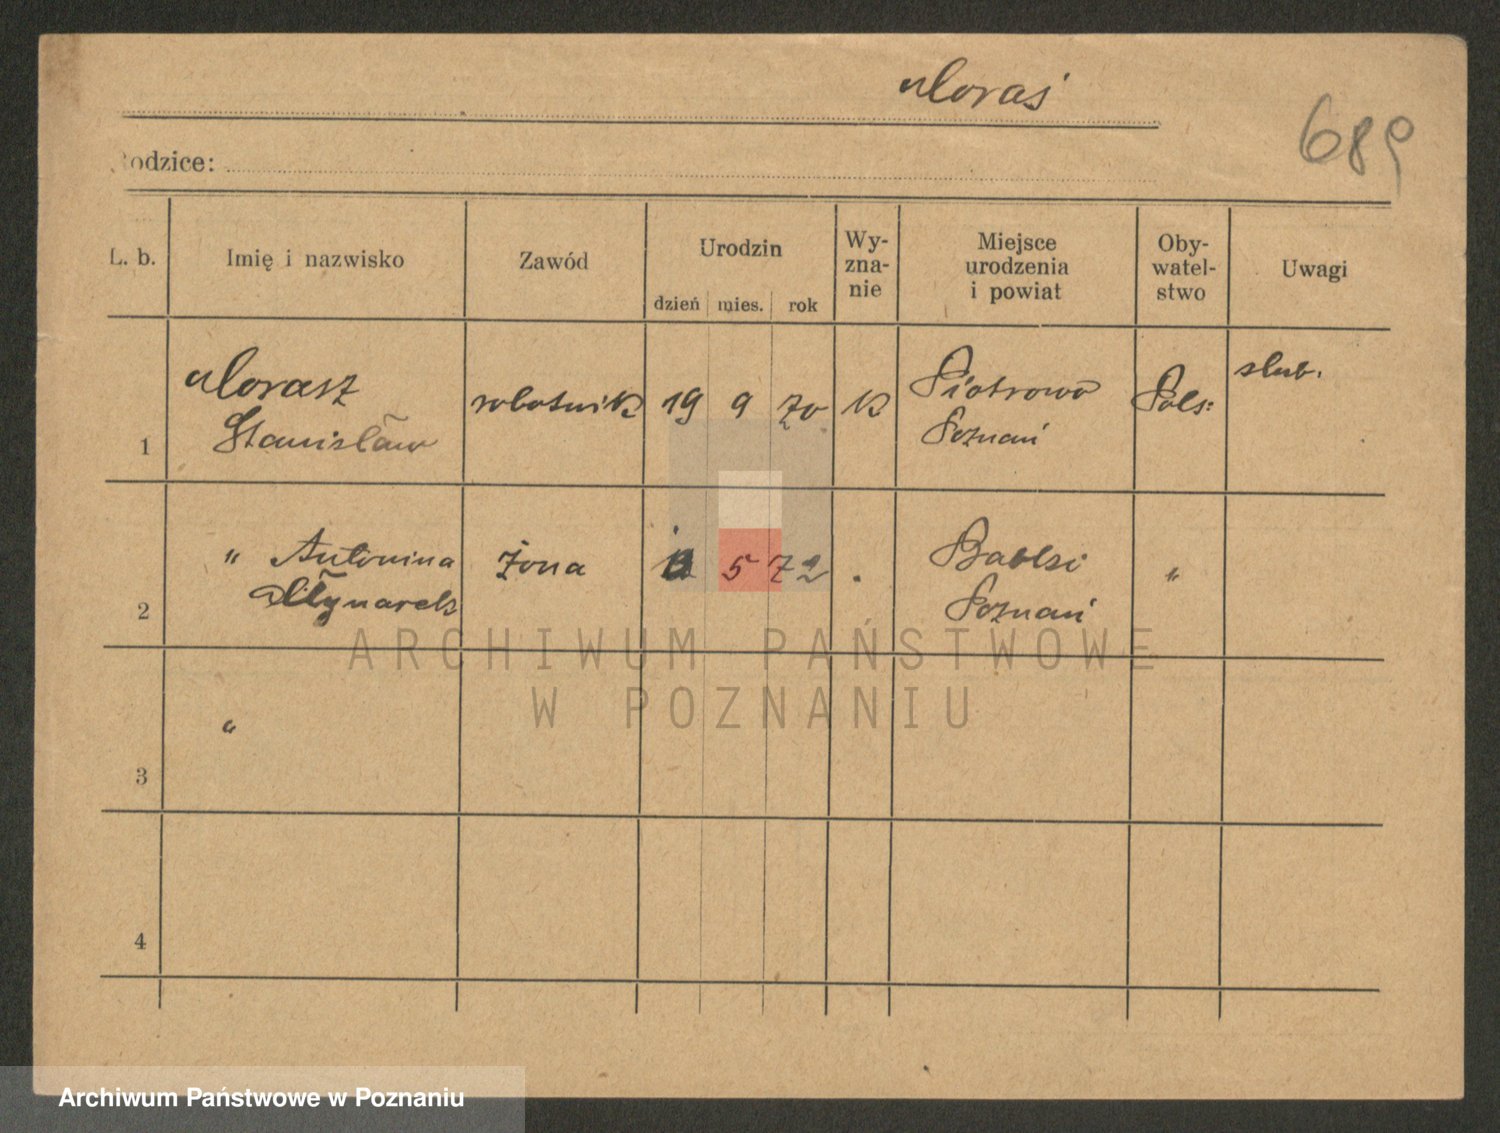 Moraś
689
Rodzice:
L. b. Imię i nazwisko Zawód Urodzin dzień mies. rok Wy-zna-nie Miejsce urodzenia i powiat Oby-watel-stwo Uwagi
1 Morasz Stanisław robotnik 19 9 70 K Piotrowo Poznań Pols: slub.
2 " Antonina Młynarek żona 5 72 . Babki Poznań "
3 "
4
ARCHIWUM PAŃSTWOWE
W POZNANIU
Archiwum Państwowe w Poznaniu